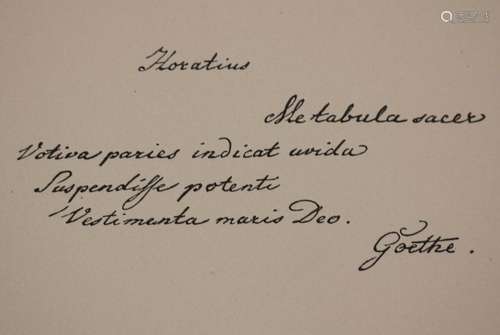 Horatius
Me tabula sacer
Votiva paries indicat uvida
Suspendisse potenti
Vestimenta maris Deo.
Goethe.